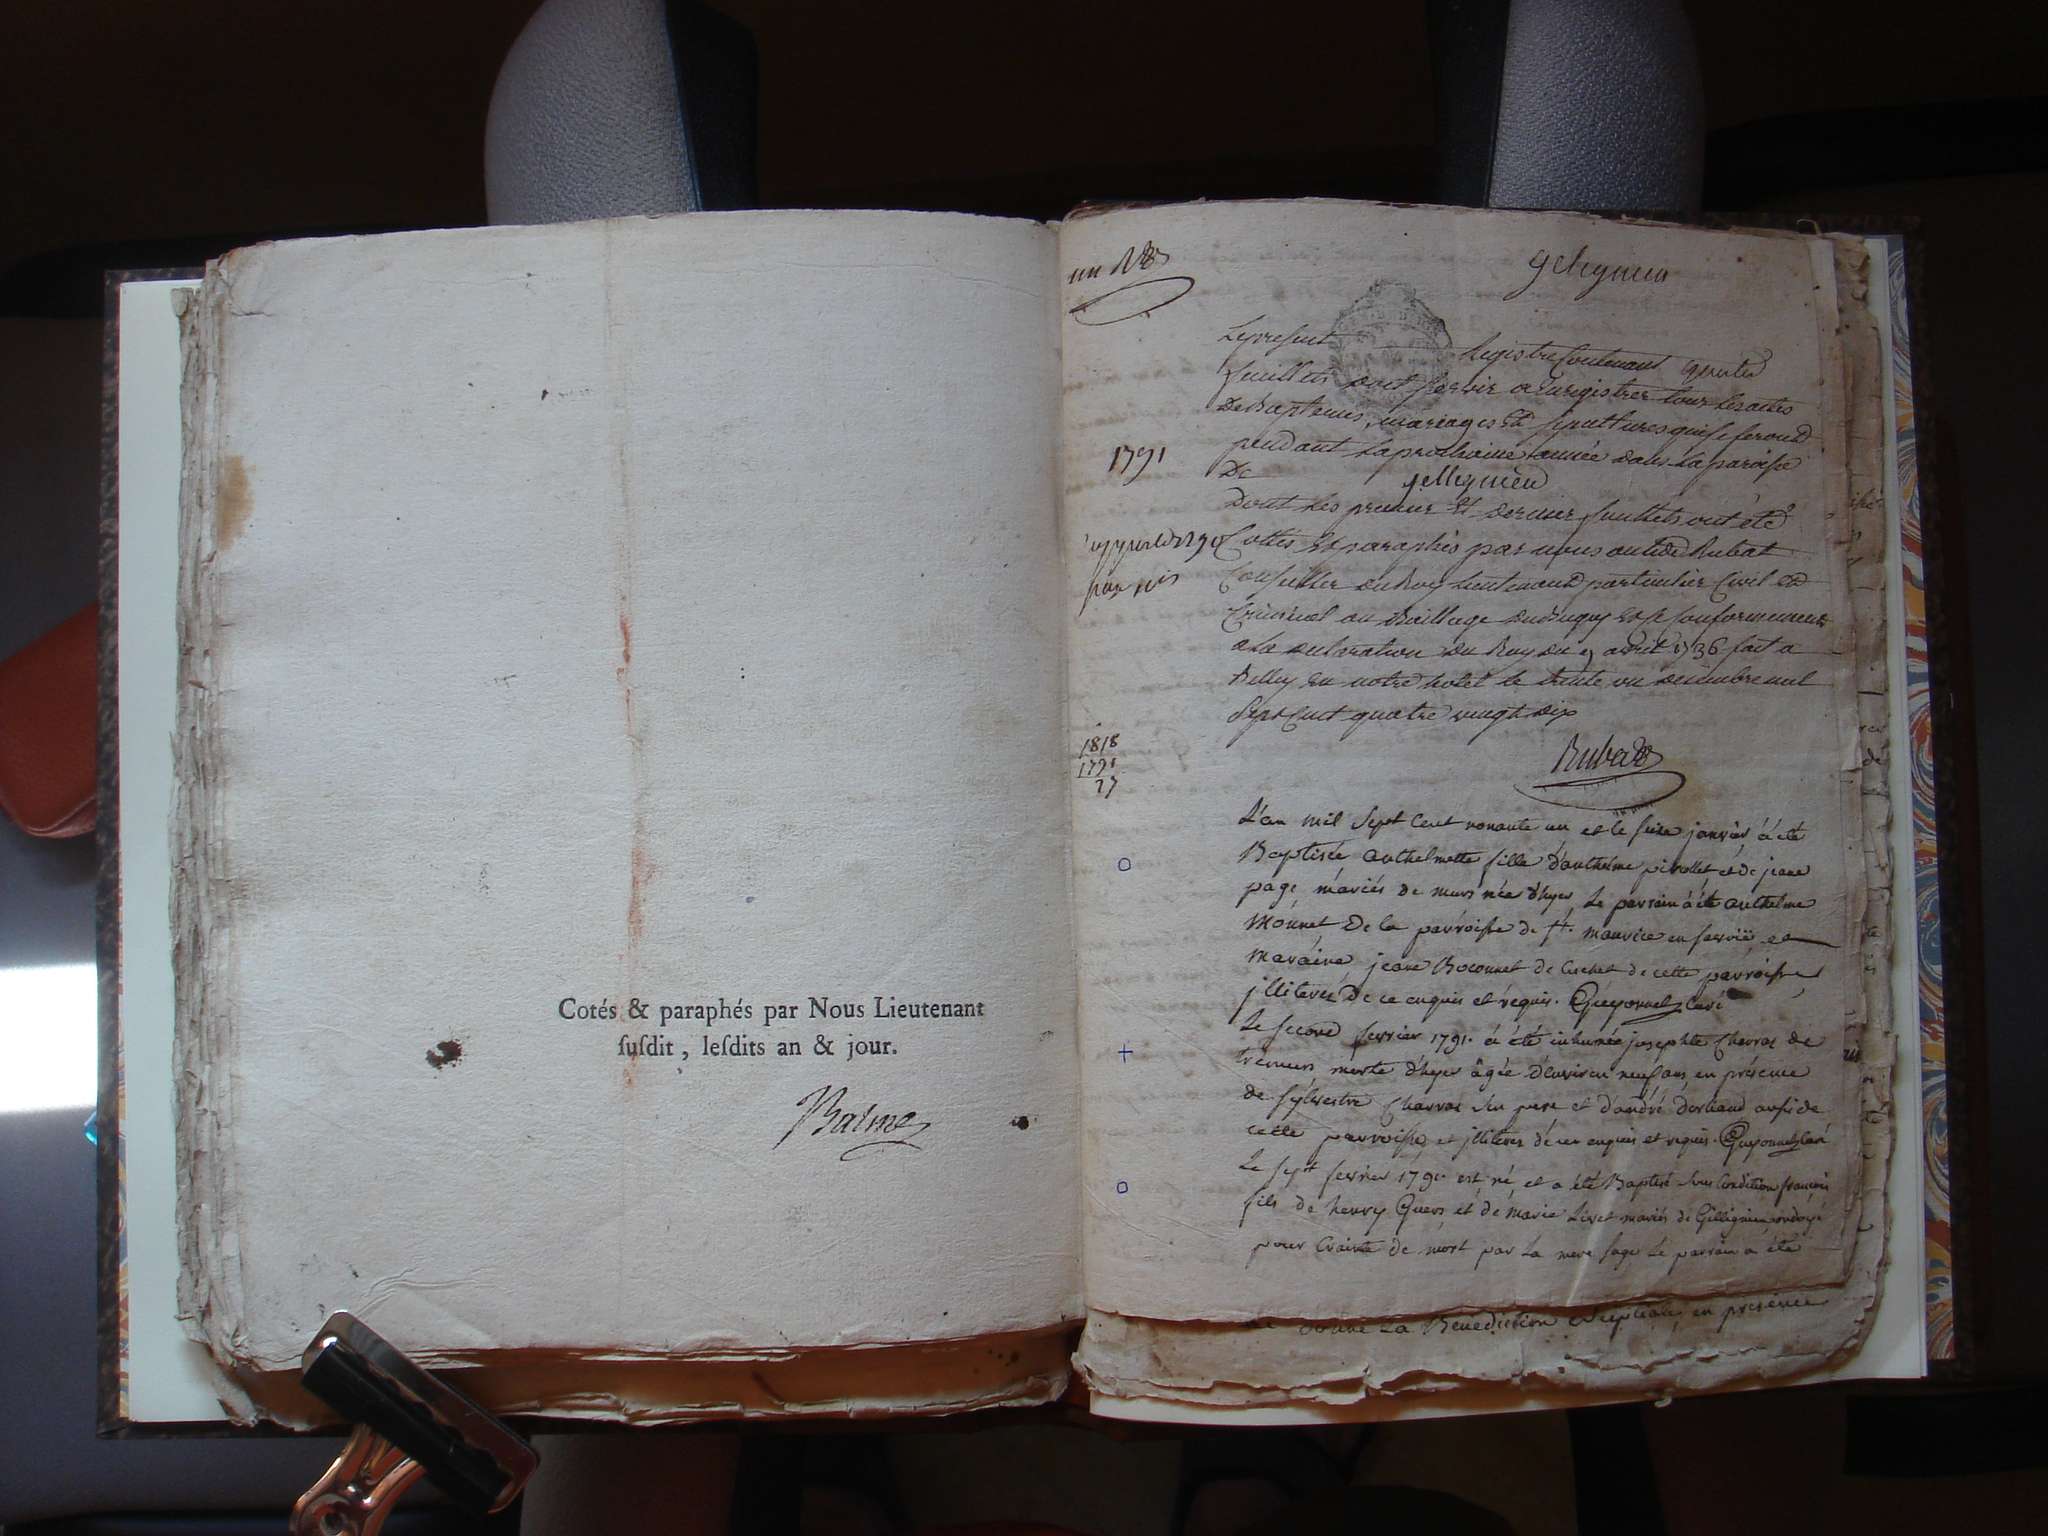 Cotés & paraphés par Nous Lieutenant
ſuſdit, leſdits an & jour.
Balme
un
gelignieu
Le present Registre Contenant quatre
feuillets doit servir a Enregistrer tous les actes
De Baptemes, mariages Et sepultures qui se feront
pendant La prochaine année dans La paroisse
1791
De gellignieu
Dont Les premier Et dernier feuillets ont été
Cottés Et paraphés par nous Rubat
Conseiller du Roy Lieutenant particulier Civil et
Criminel au Baillage du Bugey conformement
a La declaration du Roy du 9 avril 1736 fait a
Belley en notre hotel le trente un decembre mil
Sept Cent quatre vingt dix
Rubat
1818
1791
27
L'an mil sept Cent nonante un et le seize janvier à été
Baptisée anthelmette fille d'anthelme pirollet et de jeane
page mariés de murs née d'hyer Le parrain à été anthelme
Monnet De la parroisse de St. maurice en et
maraine jeane de cette parroisse
jlliterés de ce enquis et requis. Gueyonnet Curé
Le second fevrier 1791. à été inhumée josephte Charvas de
morte d'hyer âgée d'environ neuf ans en présence
de sylvestre Charvas son pere et d'andré aussi de
cette parroisse et jlliterés de ce enquis et requis. Gueyonnet Curé
Le sept fevrier 1791. est né et a été Baptisé sous Condition françois
fils de henry Guers et de marie Livet mariés de Gillignieu ondoyé
pour Crainte de mort par La mere sage Le parrain a été
donné La Benediction en présence